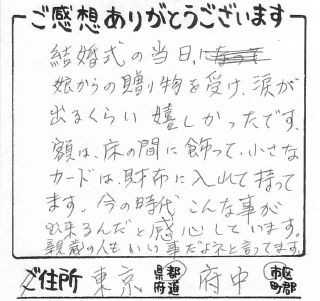 ご感想ありがとうございます
結婚式の当日に
娘からの贈り物を受け、涙が
出るくらい嬉しかったです。
額は、床の間に飾って、小さな
カードは、財布に入れて持って
ます。今の時代こんな事が
出来るんだと感心しています。
親蔵の人もいい事だよネと言ってます。
ご住所 東京 都道府県 府中 市区町郡